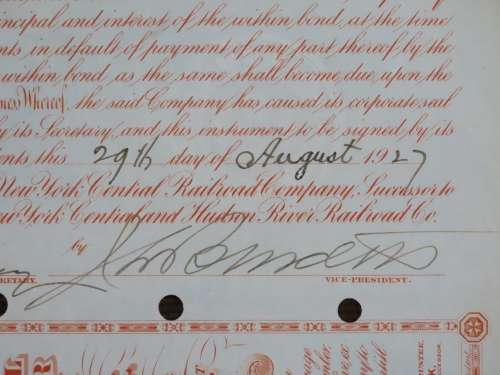 rincipal and interest of the within bond, at the time
nts in default of payment of any part thereof by the
within bond as the same shall become due upon the
ness Whereof, the said Company has caused its corporate seal
y its Secretary, and this instrument to be signed by its
ents this 29th day of August 1927
New York Central Railroad Company, Successor to
ew York Central and Hudson River Railroad Co.
by
RETARY. VICE-PRESIDENT.